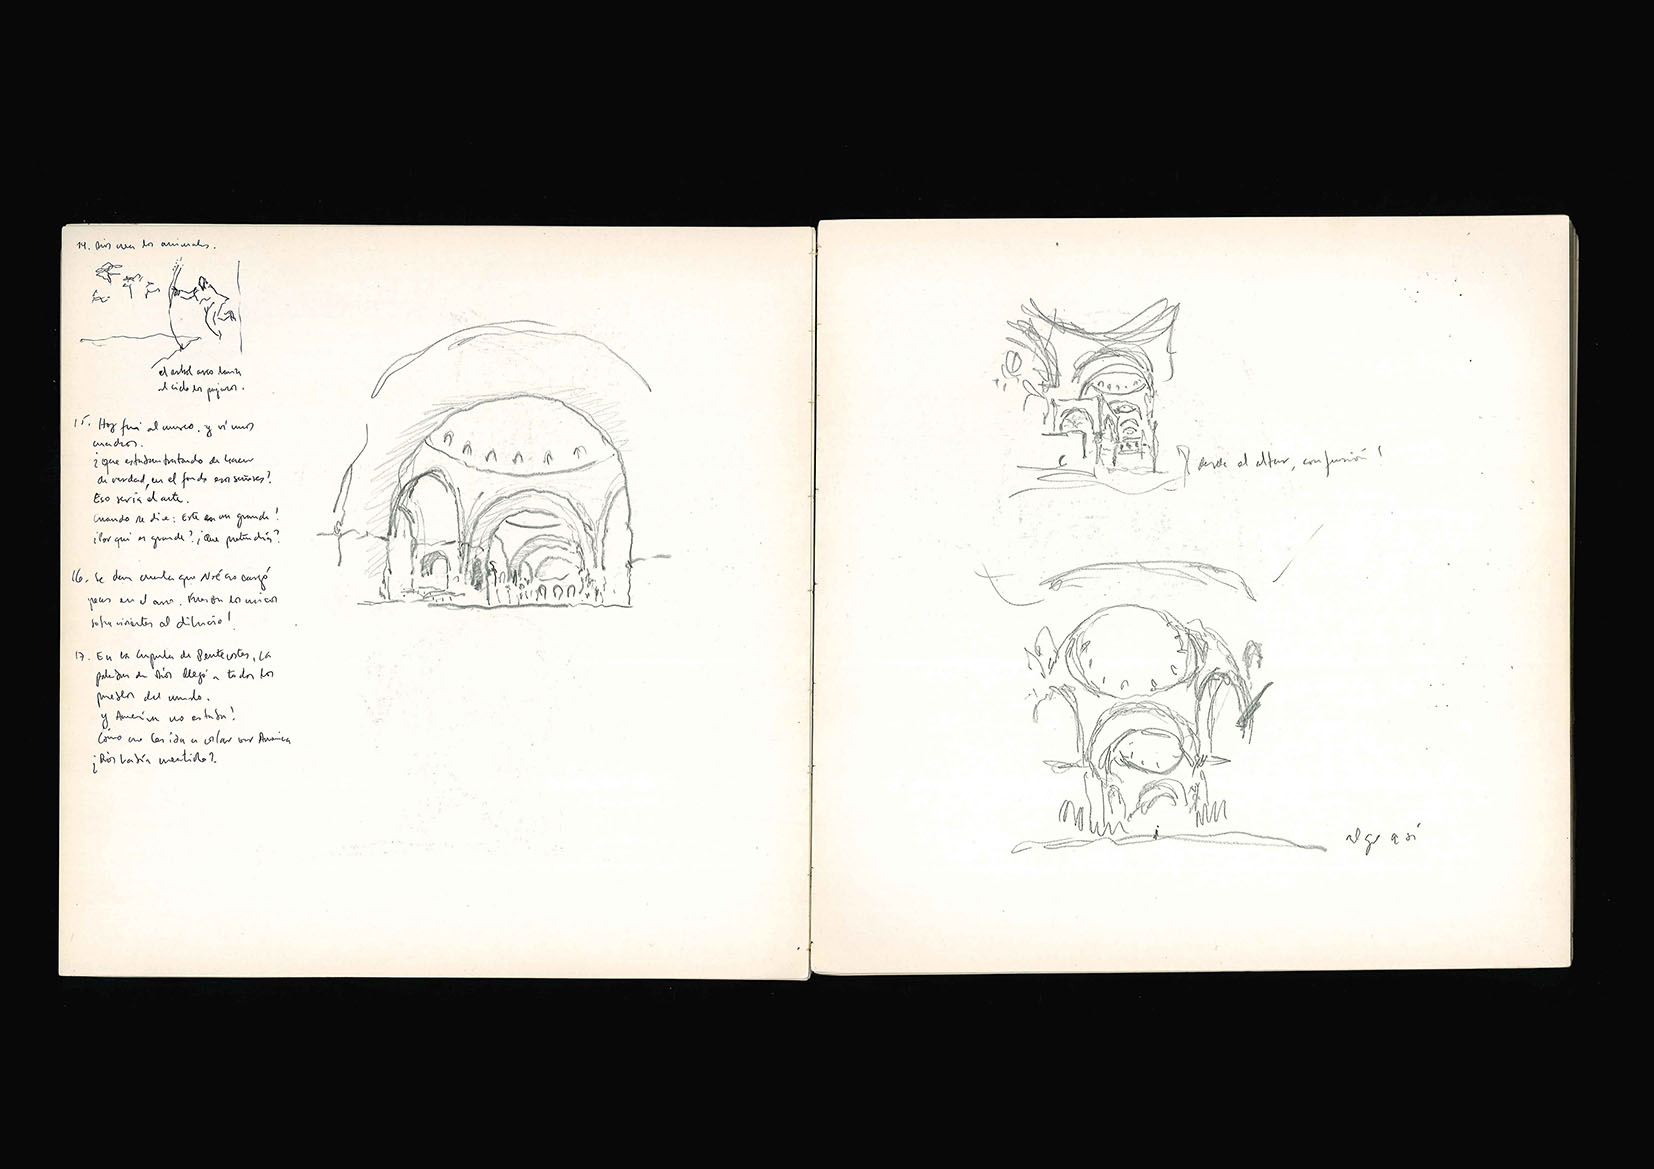 14. Dios crea los animales.
el árbol
al cielo los pájaros.
15. Hoy fui al museo. y vi unos
cuadros.
¿que estaban tratando de hacer
de verdad, en el fondo esos señores?
Eso sería el arte.
Cuando se dice: Este es un grande!
¿Por qué es grande? ¿Que pretendía?
16. Se dan cuenta que Noé no cargó
peces en el arca. Fueron los únicos
sobrevivientes al diluvio!
17. En la cúpula de Pentecostés, la
palabra de Dios llegó a todos los
pueblos del mundo.
y América no estaba!
Cómo no les iba a volar América
¡Dios había mentido?.
desde el altar, confusión!
algo así